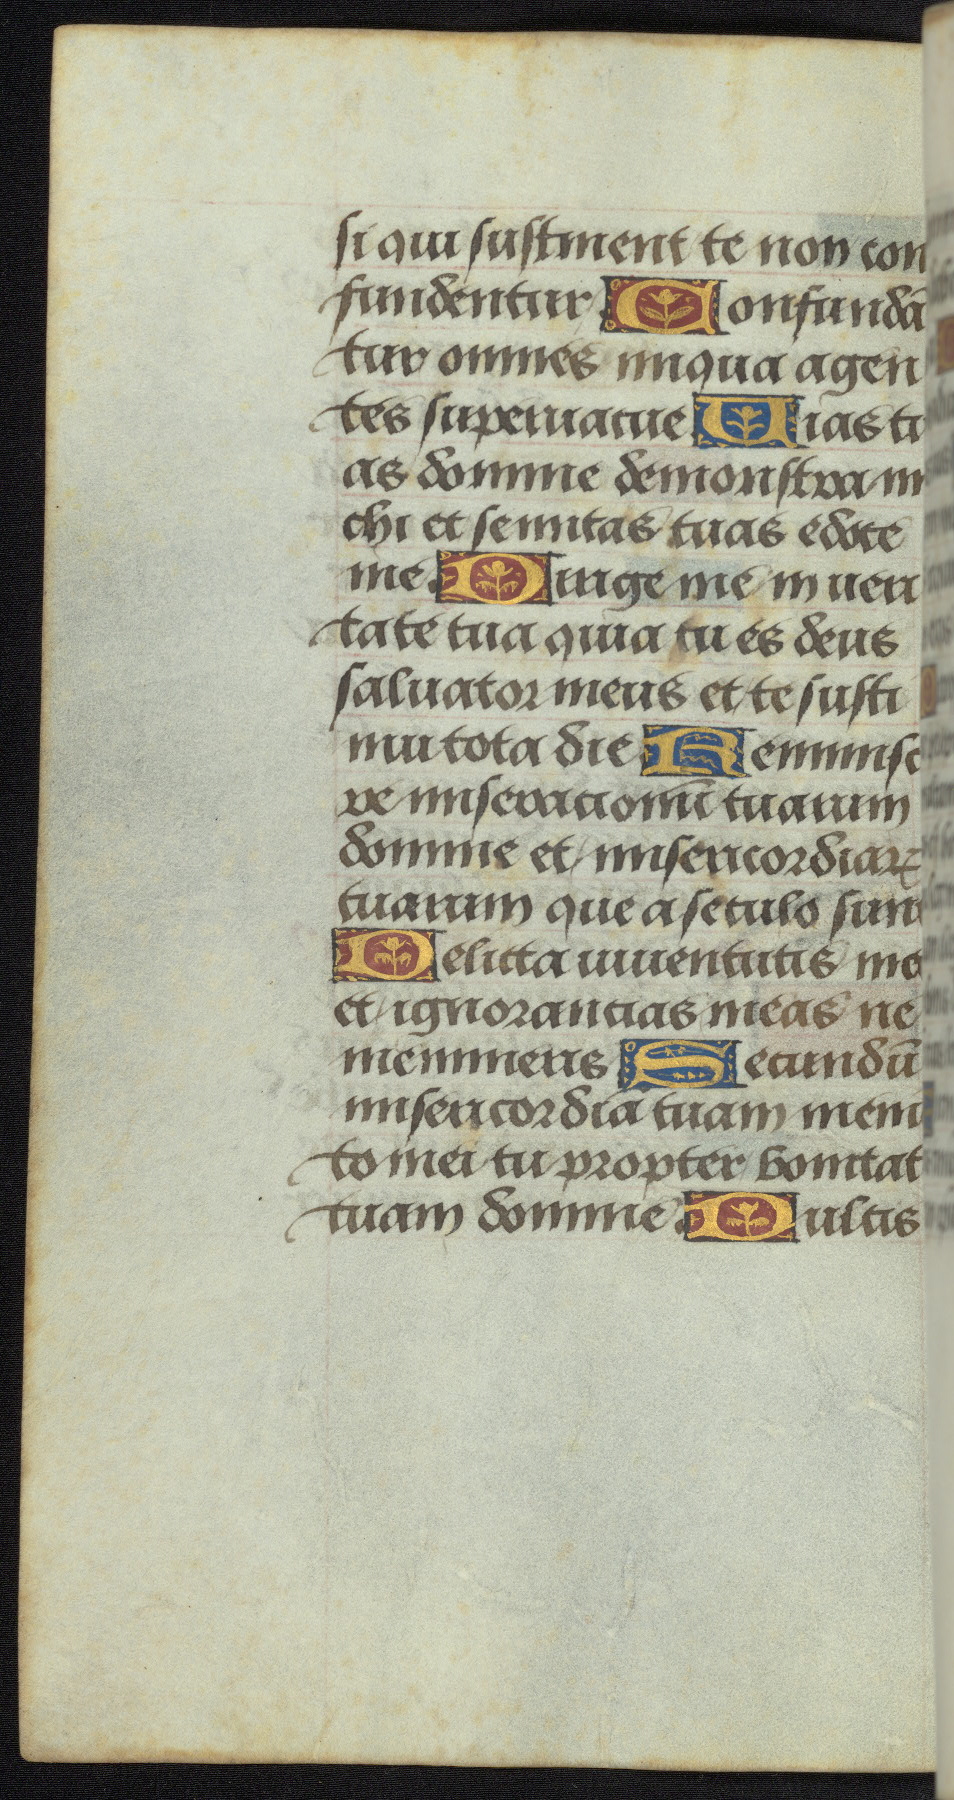 si qui sustinent te non con
fundentur Confundā
tur omnes iniqua agen
tes supervacue Vias tu
as domine demonstra mi
chi et semitas tuas edoce
me Dirige me in veri
tate tua quia tu es deus
salvator meus et te susti
nui tota die Reminisc
re miseracionū tuarum
domine et misericordiaꝝ
tuarum que a seculo sunt
Delicta iuventutis me
et ignorancias meas ne
memineris Secundū
misericordia tuam mem
to mei tu propter bonitat
tuam domine Dulcis